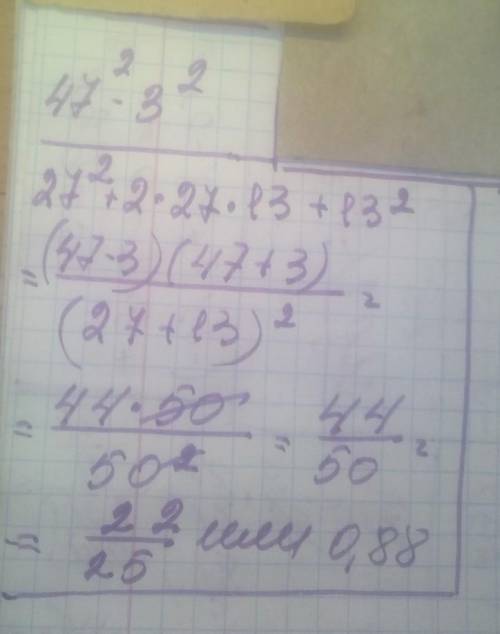 47² - 3²
27² + 2 · 27 · 13 + 13²
= (47-3)(47+3) =
(27+13)²
= 44 · 50 = 44 =
50² 50
= 22 или 0,88
25